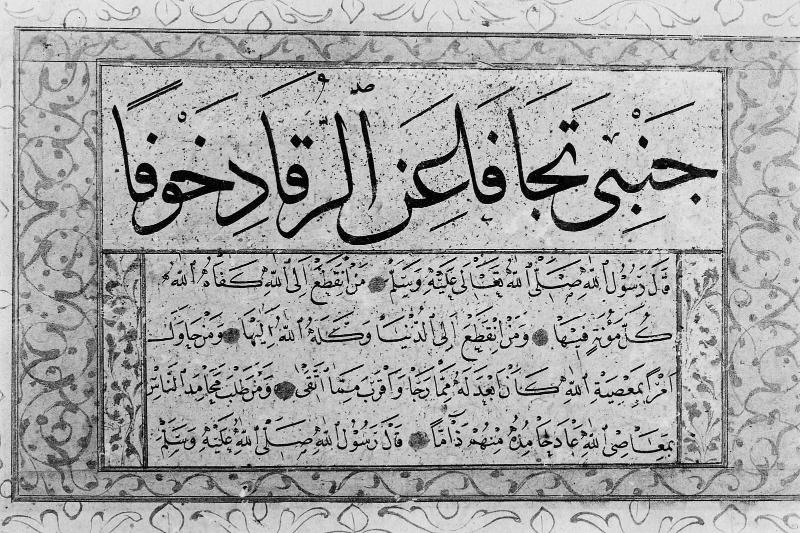 جَنْبِي تَجَافَا عَنِ الرُّقَادِ خَوْفًا
قَالَ رَسُولُ اللهِ صَلَّى اللهُ تَعَالَى عَلَيْهِ وَسَلَّمَ مَنِ انْقَطَعَ إِلَى اللهِ كَفَاهُ اللهُ
كُلَّ مَؤُنَةٍ فِيهَا وَمَنِ انْقَطَعَ إِلَى الدُّنْيَا وَكَلَهُ اللهُ إِلَيْهَا وَمَنْ حَاوَلَ
اَمْرًا بِمَعْصِيَةِ اللهِ كَانَ اَبْعَدَ لَهُ مِمَّا رَجَا وَاَقْرَبَ مِمَّا اتَّقَى وَمَنْ طَلَبَ مَحَامِدَ النَّاسِ
بِمَعَاصِي اللهِ عَادَ حَامِدُهُ مِنْهُمْ ذَامًّا قَالَ رَسُولُ اللهِ صَلَّى اللهُ عَلَيْهِ وَسَلَّمَ